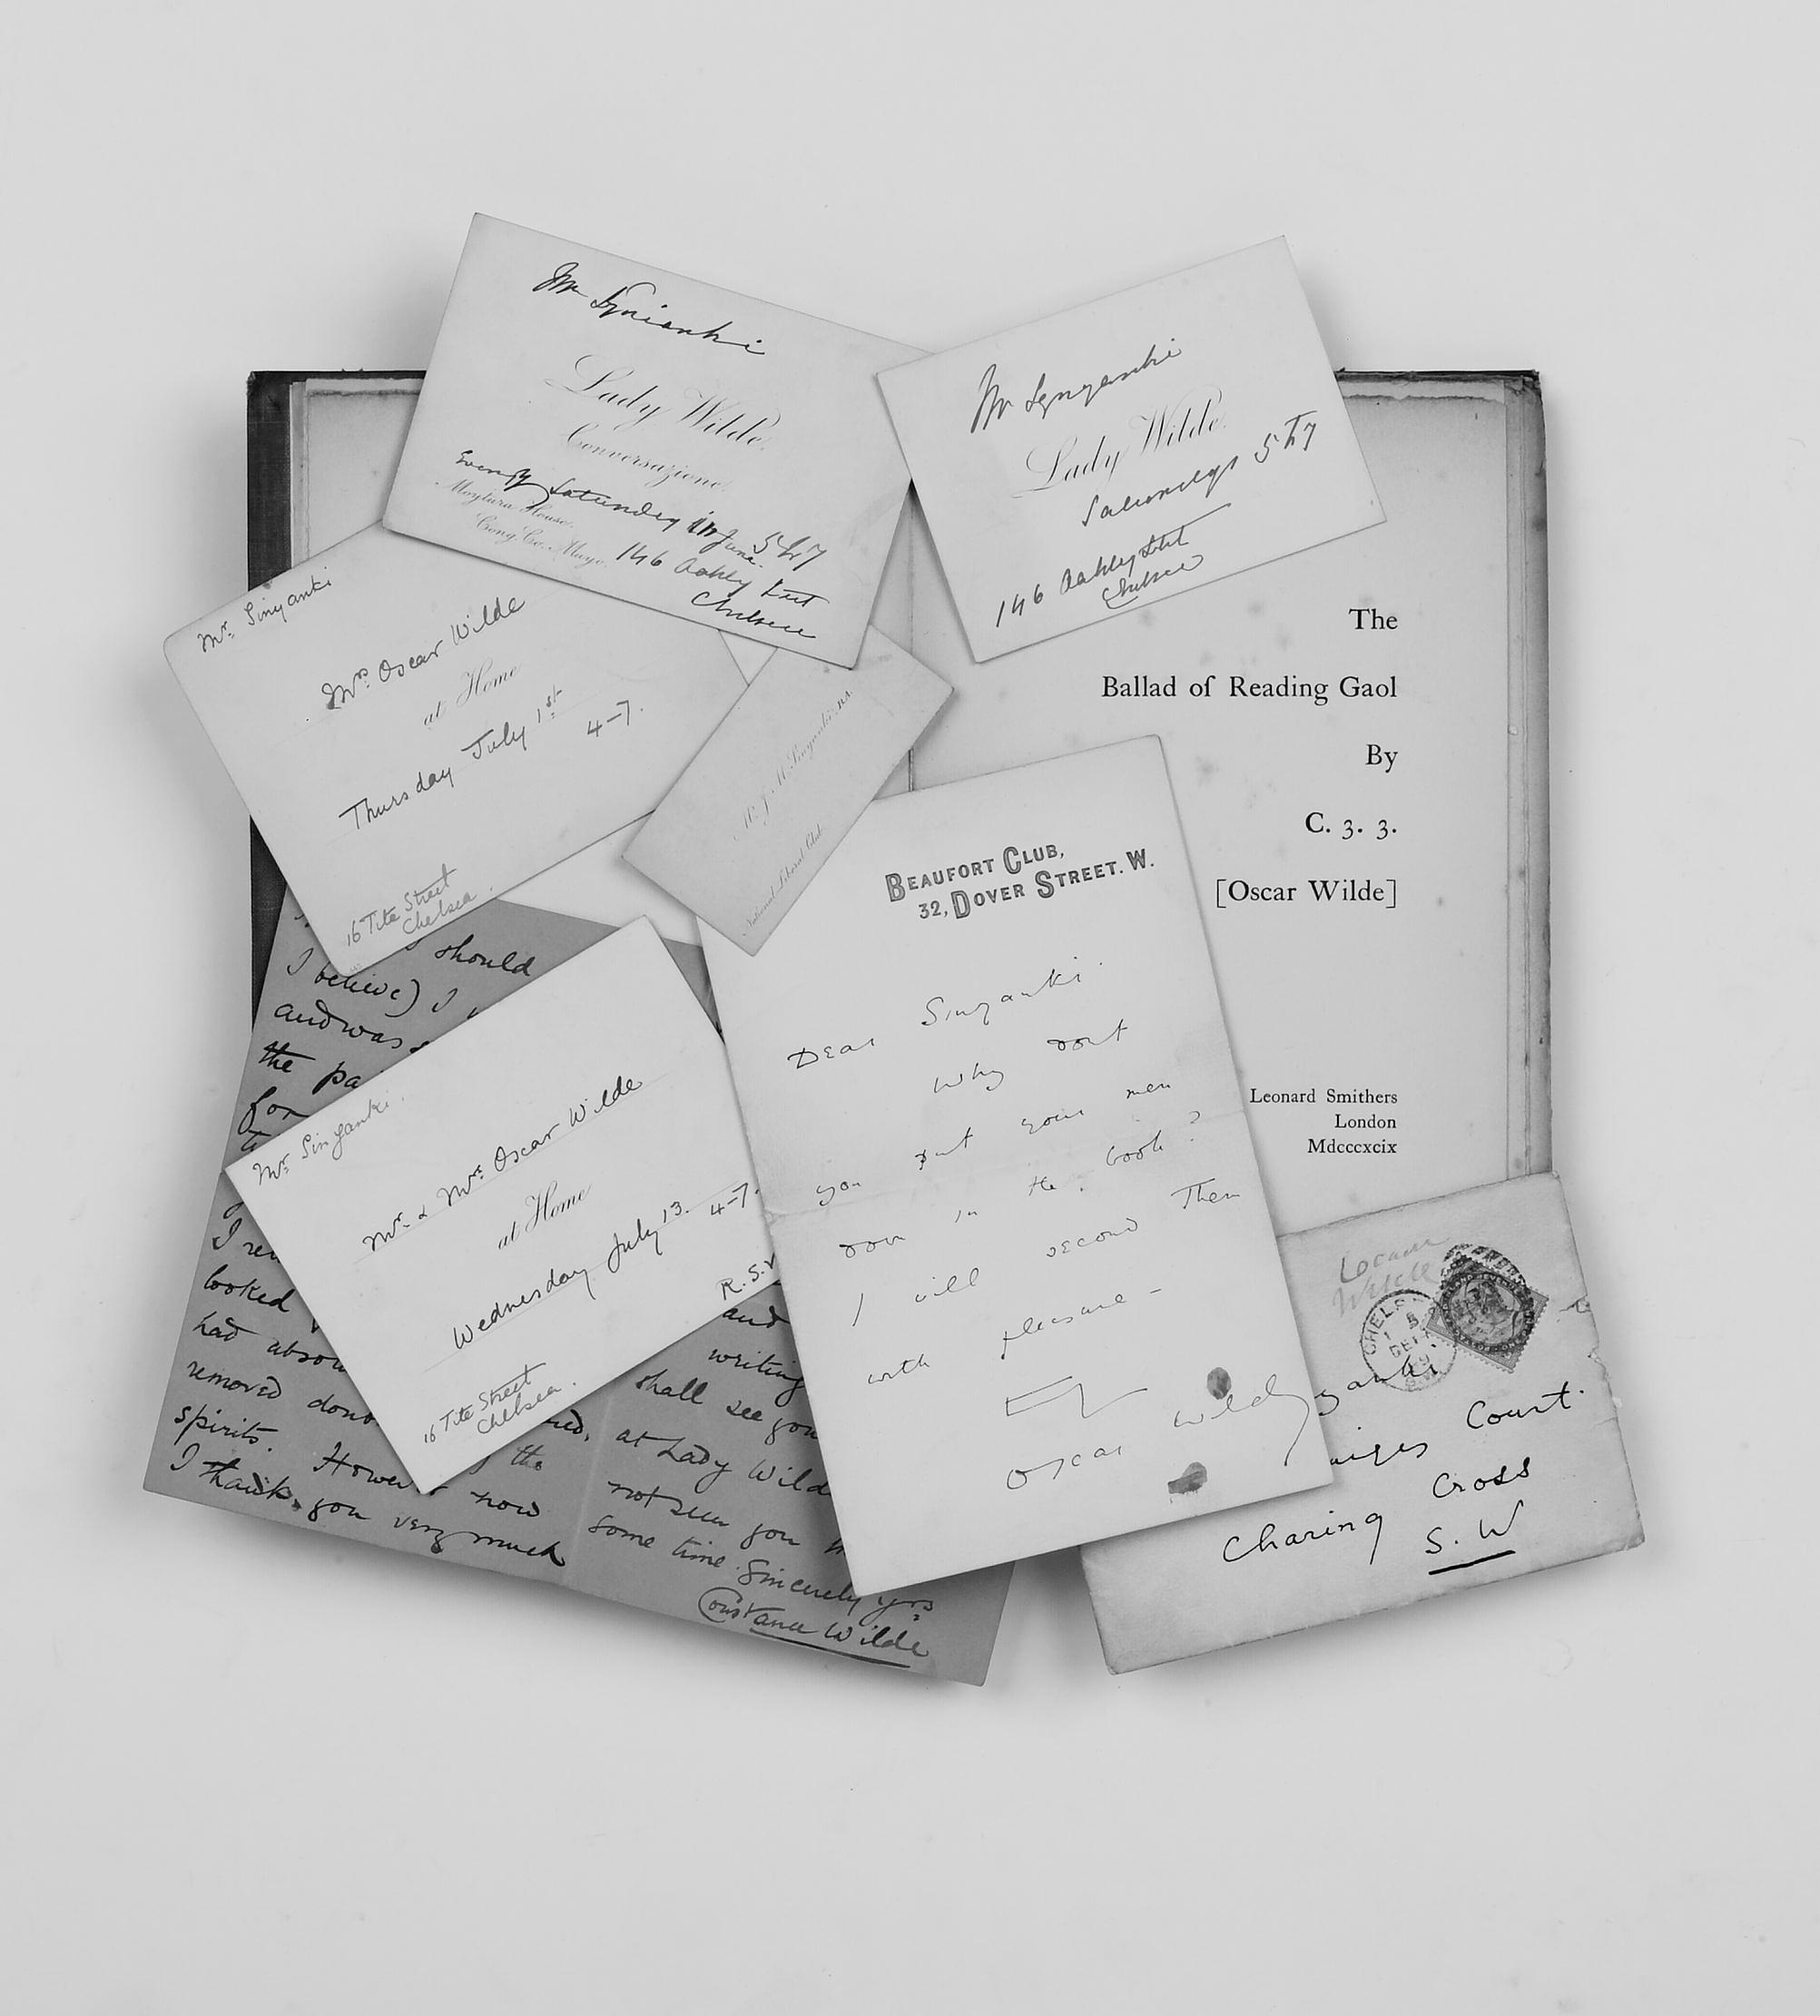 Mr
Lady Wilde.
Conversazione.
Saturday in June 5 to 7
Moytura House.
Cong, Co. Mayo.
146 Oakley Street
Chelsea
Mr
Lady Wilde.
Saturdays 5 to 7
146 Oakley Street
Chelsea
Mr. Sinyanki
Mrs. Oscar Wilde
at Home
Thursday July 1st
4-7.
16 Tite Street
Chelsea.
Mr. J. M. Sinyanki,
National Liberal Club.
The
Ballad of Reading Gaol
By
C. 3. 3.
[Oscar Wilde]
Leonard Smithers
London
Mdcccxcix
Beaufort Club,
32, Dover Street. W.
Dear Sinyanki.
Why dont
you put your men
down in the book?
I will second them
with pleasure -
Oscar Wilde
Mr. Sinyanki.
Mr. & Mrs. Oscar Wilde
at Home
Wednesday July 13. 4-7.
R.S.V
16 Tite Street
Chelsea.
should
I believe) I
and was
the pa
for
I
looked
had abso
removed
spirits. However now
I thank you very much
the
and
writing
shall see you
at Lady Wild
not seen you
some time. Sincerely yrs
Constance Wilde
Oscar
Wilde
CHELS
5
DE
yanki
Court.
Charing Cross
S. W